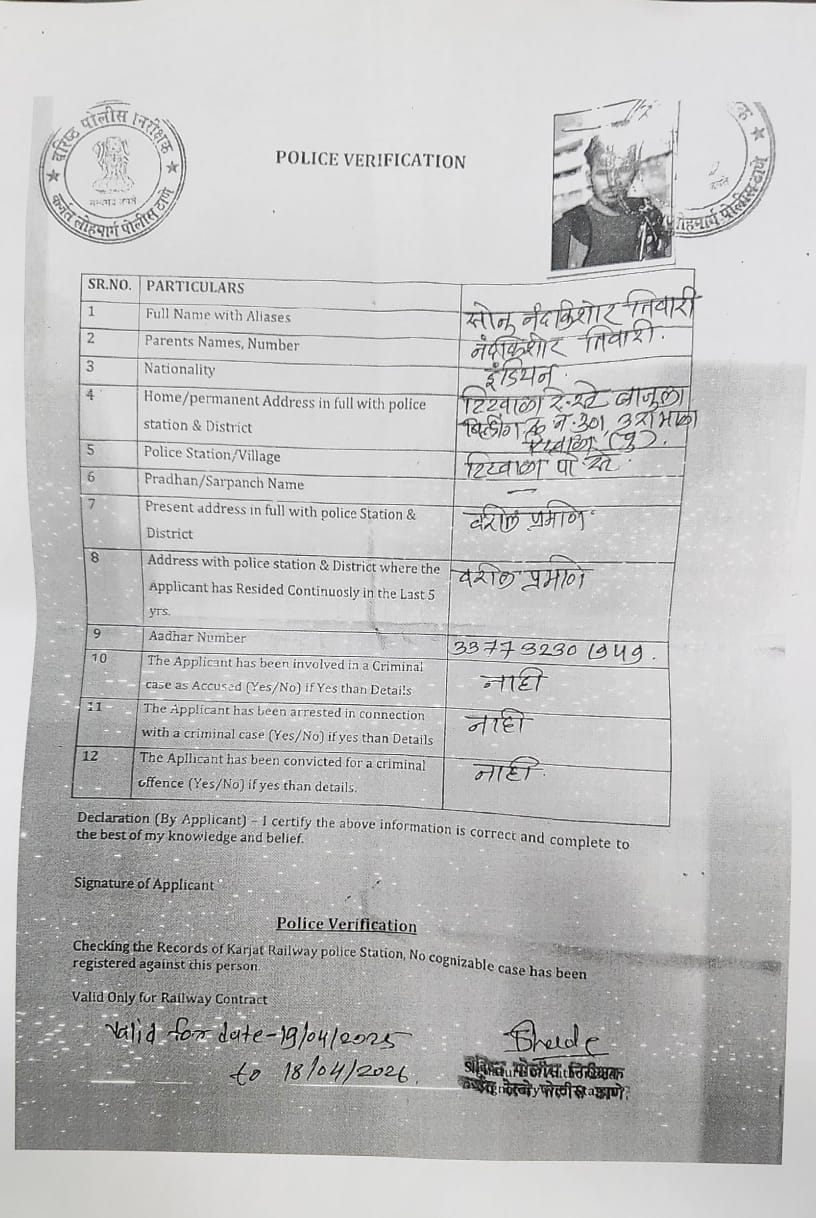 वरिष्ठ पोलीस निरीक्षक
कर्जत लोहमार्ग पोलीस ठाणे
POLICE VERIFICATION
लोहमार्ग पोलीस ठाणे
SR.NO. PARTICULARS
1 Full Name with Aliases सोनु नंदकिशोर तिवारी
2 Parents Names, Number नंदकिशोर तिवारी.
3 Nationality इंडियन.
4 Home/permanent Address in full with police टिटवाळा रे-स्टे बाजुला
station & District बिल्डींग नं-301, 3रा माळा
टिटवाळा (पु).
5 Police Station/Village टिटवाळा पो. स्टे.
6 Pradhan/Sarpanch Name —
7 Present address in full with police Station & वरील प्रमाणे
District
8 Address with police station & District where the वरील प्रमाणे
Applicant has Resided Continuosly in the Last 5
yrs.
9 Aadhar Number 3377 3230 1949.
10 The Applicant has been involved in a Criminal नाही
case as Accused (Yes/No) if Yes than Details
11 The Applicant has been arrested in connection नाही
with a criminal case (Yes/No) if yes than Details
12 The Apllicant has been convicted for a criminal नाही.
offence (Yes/No) if yes than details.
Declaration (By Applicant) – I certify the above information is correct and complete to
the best of my knowledge and belief.
Signature of Applicant
Police Verification
Checking the Records of Karjat Railway police Station, No cognizable case has been
registered against this person
Valid Only for Railway Contract
Valid for date-19/04/2025
to 18/04/2026.
वरिष्ठ पोलीस निरीक्षक
कर्जत रेल्वे पोलीस ठाणे.